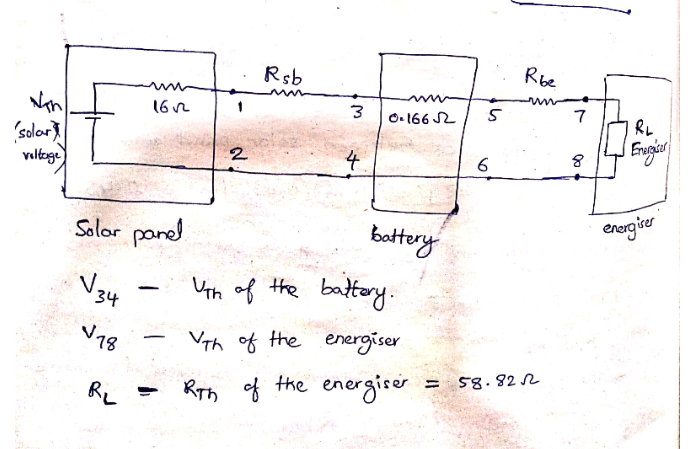 Rsb
Rbe
Vth
(solar)
voltage)
16Ω
1
3
0.166Ω
5
7
RL
Energiser
2
4
6
8
Solar panel
battery
energiser
V34 — VTh of the battery.
V78 — VTh of the energiser
RL = RTh of the energiser = 58.82Ω